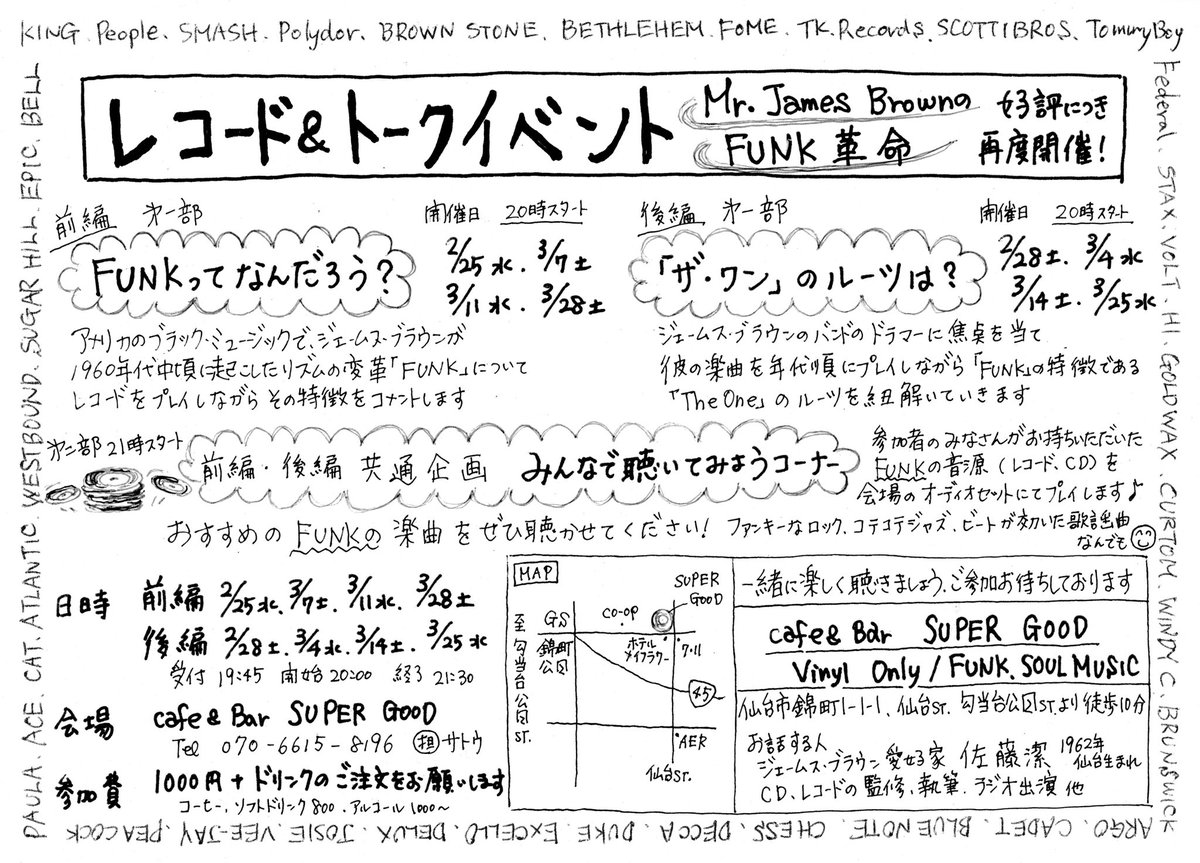 KING. People. SMASH. Polydor. BROWN STONE. BETHLEHEM. FOME. TK.Records. SCOTTI BROS. Tommy Boy
Federal. STAX. VOLT. HI. GOLDWAX. CURTOM. WINDY C. BRUNSWICK
ARGO. CADET. BLUE NOTE. CHESS. DECCA. DUKE. EXCELLO. DELUX. JOSIE. VEE-JAY. PEACOCK
PAULA. ACE. CAT. ATLANTIC. WESTBOUND. SUGAR HILL. EPIC. BELL
レコード&トークイベント
Mr. James Brownの
FUNK 革命
好評につき
再度開催!
前編 第一部
開催日 20時スタート
FUNKってなんだろう?
2/25水. 3/7土
3/11水. 3/28土
アメリカのブラック・ミュージックで、ジェームス・ブラウンが
1960年代中頃に起こしたリズムの変革「FUNK」について
レコードをプレイしながらその特徴をコメントします
後編 第一部
開催日 20時スタート
「ザ・ワン」のルーツは?
2/28土. 3/4水
3/14土. 3/25水
ジェームス・ブラウンのバンドのドラマーに焦点を当て
彼の楽曲を年代順にプレイしながら「FUNK」の特徴である
「The One」のルーツを紐解いていきます
第二部 21時スタート
前編・後編 共通企画 みんなで聴いてみようコーナー
参加者のみなさんがお持ちいただいた
FUNKの音源(レコード、CD)を
会場のオーディオセットにてプレイします♪
おすすめの FUNKの楽曲をぜひ聴かせてください!
ファンキーなロック、コテコテジャズ、ビートが効いた歌謡曲
なんでも
日時 前編 2/25水. 3/7土. 3/11水. 3/28土
後編 2/28土. 3/4水. 3/14土. 3/25水
受付 19:45 開始 20:00 終了 21:30
会場 cafe & Bar SUPER GOOD
Tel 070-6615-8196 担 サトウ
参加費 1000円+ドリンクのご注文をお願いします
コーヒー、ソフトドリンク 800、アルコール 1000~
MAP
SUPER
GOOD
CO-OP
GS
錦町
公園
ホテル
メイフラワー
7・11
至
勾当台公園
ST.
45
AER
仙台ST.
一緒に楽しく聴きましょう、ご参加お待ちしております
cafe & Bar SUPER GOOD
Vinyl Only / FUNK. SOUL MUSIC
仙台市錦町1-1-1、仙台ST. 勾当台公園ST.より徒歩10分
お話する人
ジェームス・ブラウン愛好家 佐藤潔 1962年
仙台生まれ
CD、レコードの監修、執筆、ラジオ出演 他